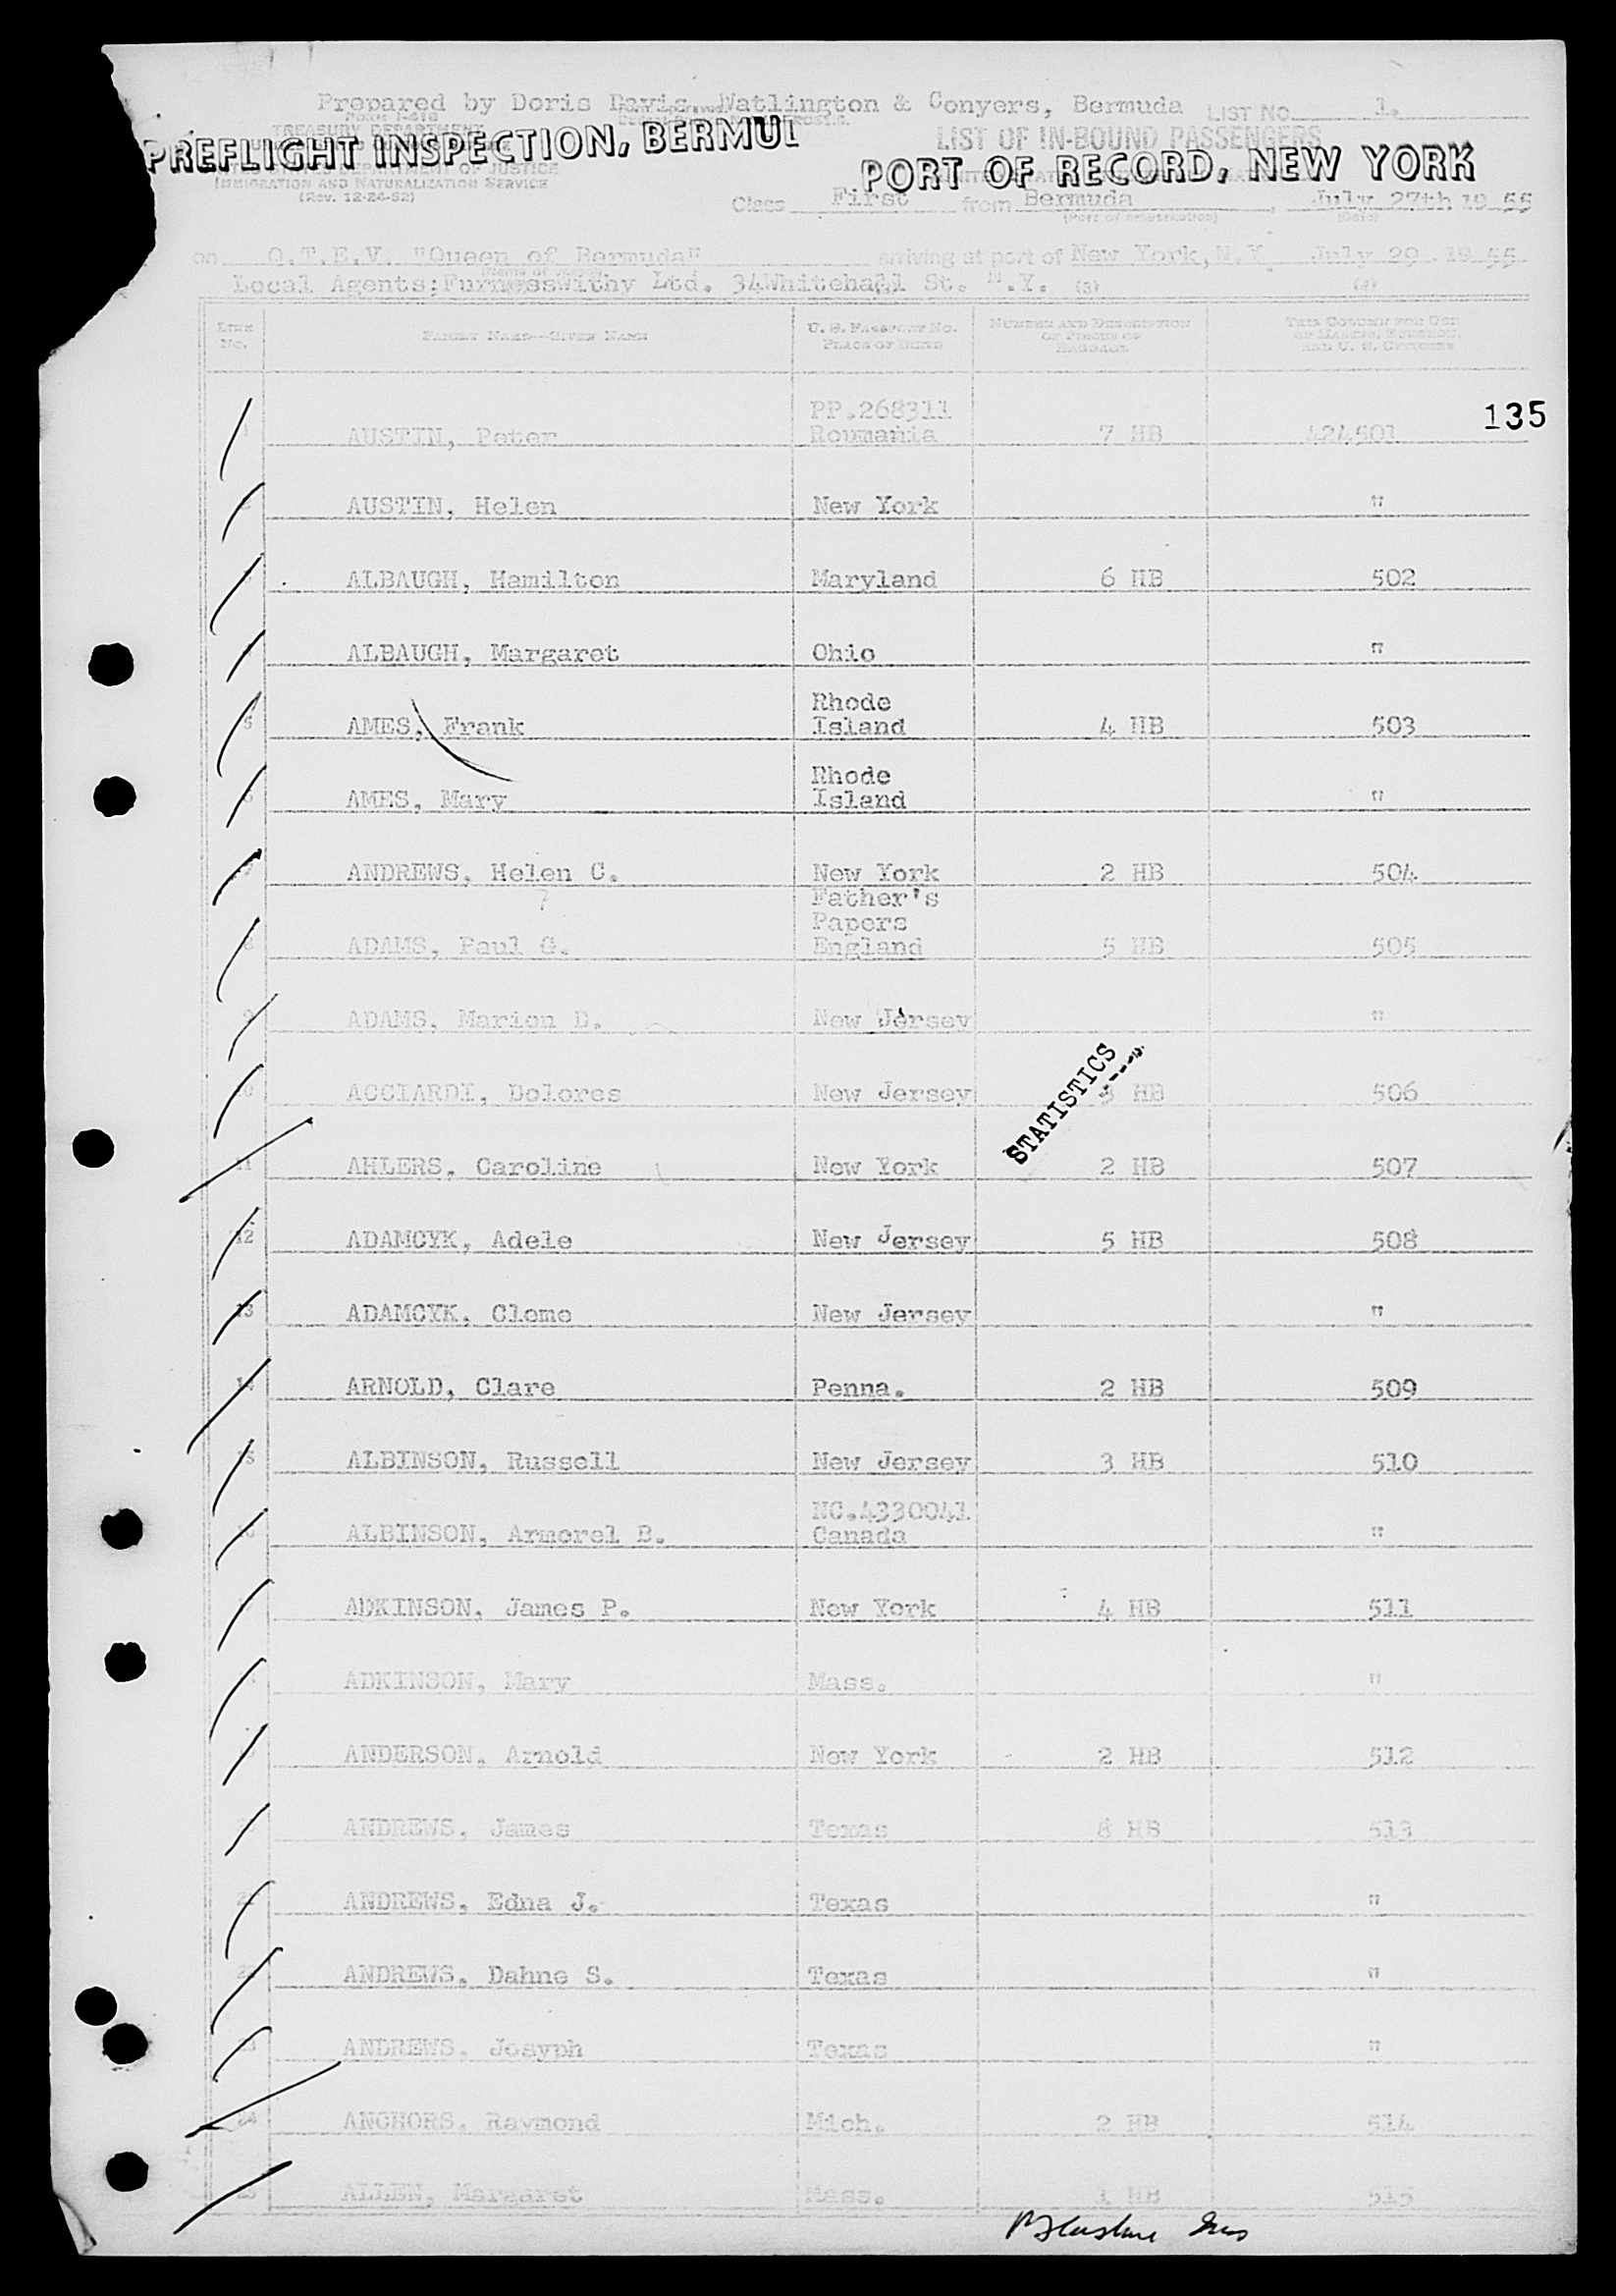 Prepared by Doris Davis, Watlington & Conyers, Bermuda LIST No. 1.
TREASURY DEPARTMENT
LIST OF IN-BOUND PASSENGERS
PREFLIGHT INSPECTION, BERMU
PORT OF RECORD, NEW YORK
DEPARTMENT OF JUSTICE
IMMIGRATION AND NATURALIZATION SERVICE
(Rev. 12-24-52)
Class First from Bermuda, July 27th 19 55
(Port of embarkation) (Date)
on Q.T.E.V. "Queen of Bermuda" arriving at port of New York, N.Y. July 29, 19 55.
(Name of vessel)
Local Agents;FurnessWithy Ltd. 34Whitehall St. N.Y. (3) (4)
LINE No. FAMILY NAME—GIVEN NAME U. S. PASSPORT No. PLACE OF BIRTH NUMBER AND DESCRIPTION OF PIECES OF BAGGAGE THIS COLUMN FOR USE OF MASTER, SURGEON, AND U. S. OFFICERS
135
PP.268311
1 AUSTIN, Peter Roumania 7 HB 424501
2 AUSTIN, Helen New York "
ALBAUGH, Hamilton Maryland 6 HB 502
ALBAUGH, Margaret Ohio "
Rhode
5 AMES, Frank Island 4 HB 503
Rhode
6 AMES, Mary Island "
7 ANDREWS, Helen C. New York 2 HB 504
Father's
Papers
8 ADAMS, Paul G. England 5 HB 505
9 ADAMS, Marion D. New Jersey "
10 ACCIARDI, Dolores New Jersey 3 HB 506
STATISTICS
11 AHLERS, Caroline New York 2 HB 507
12 ADAMCYK, Adele New Jersey 5 HB 508
13 ADAMCYK, Cleme New Jersey "
14 ARNOLD, Clare Penna. 2 HB 509
15 ALBINSON, Russell New Jersey 3 HB 510
NC.4330041
16 ALBINSON, Armorel B. Canada "
ADKINSON, James P. New York 4 HB 511
ADKINSON, Mary Mass. "
ANDERSON, Arnold New York 2 HB 512
ANDREWS, James Texas 8 HB 513
21 ANDREWS, Edna J. Texas "
22 ANDREWS, Dahne S. Texas "
23 ANDREWS, Josyph Texas "
24 ANCHORS, Raymond Mich. 2 HB 514
25 ALLEN, Margaret Mass. 1 HB 515